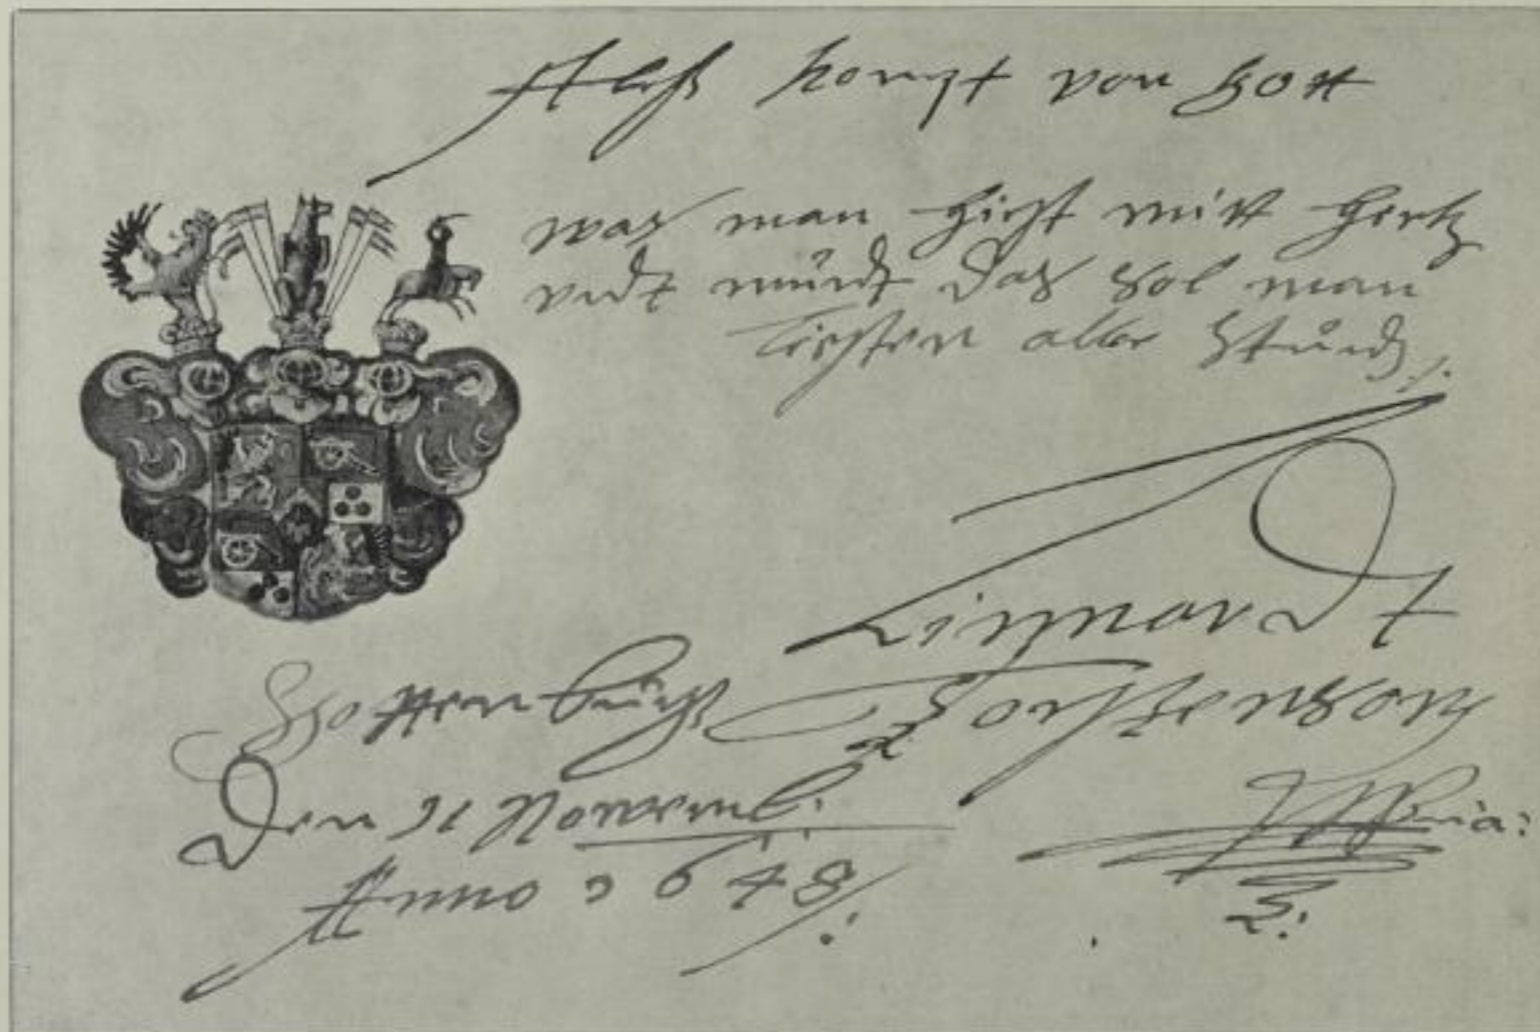 Aleß kompt von Gott
waß man gicht mitt hertz
vndt mundt daß sol man
leisten alle stundt
Linnardt
Torstenson
Gottenburgk
Den 11 Novemb:
Anno 1648
Mpria: